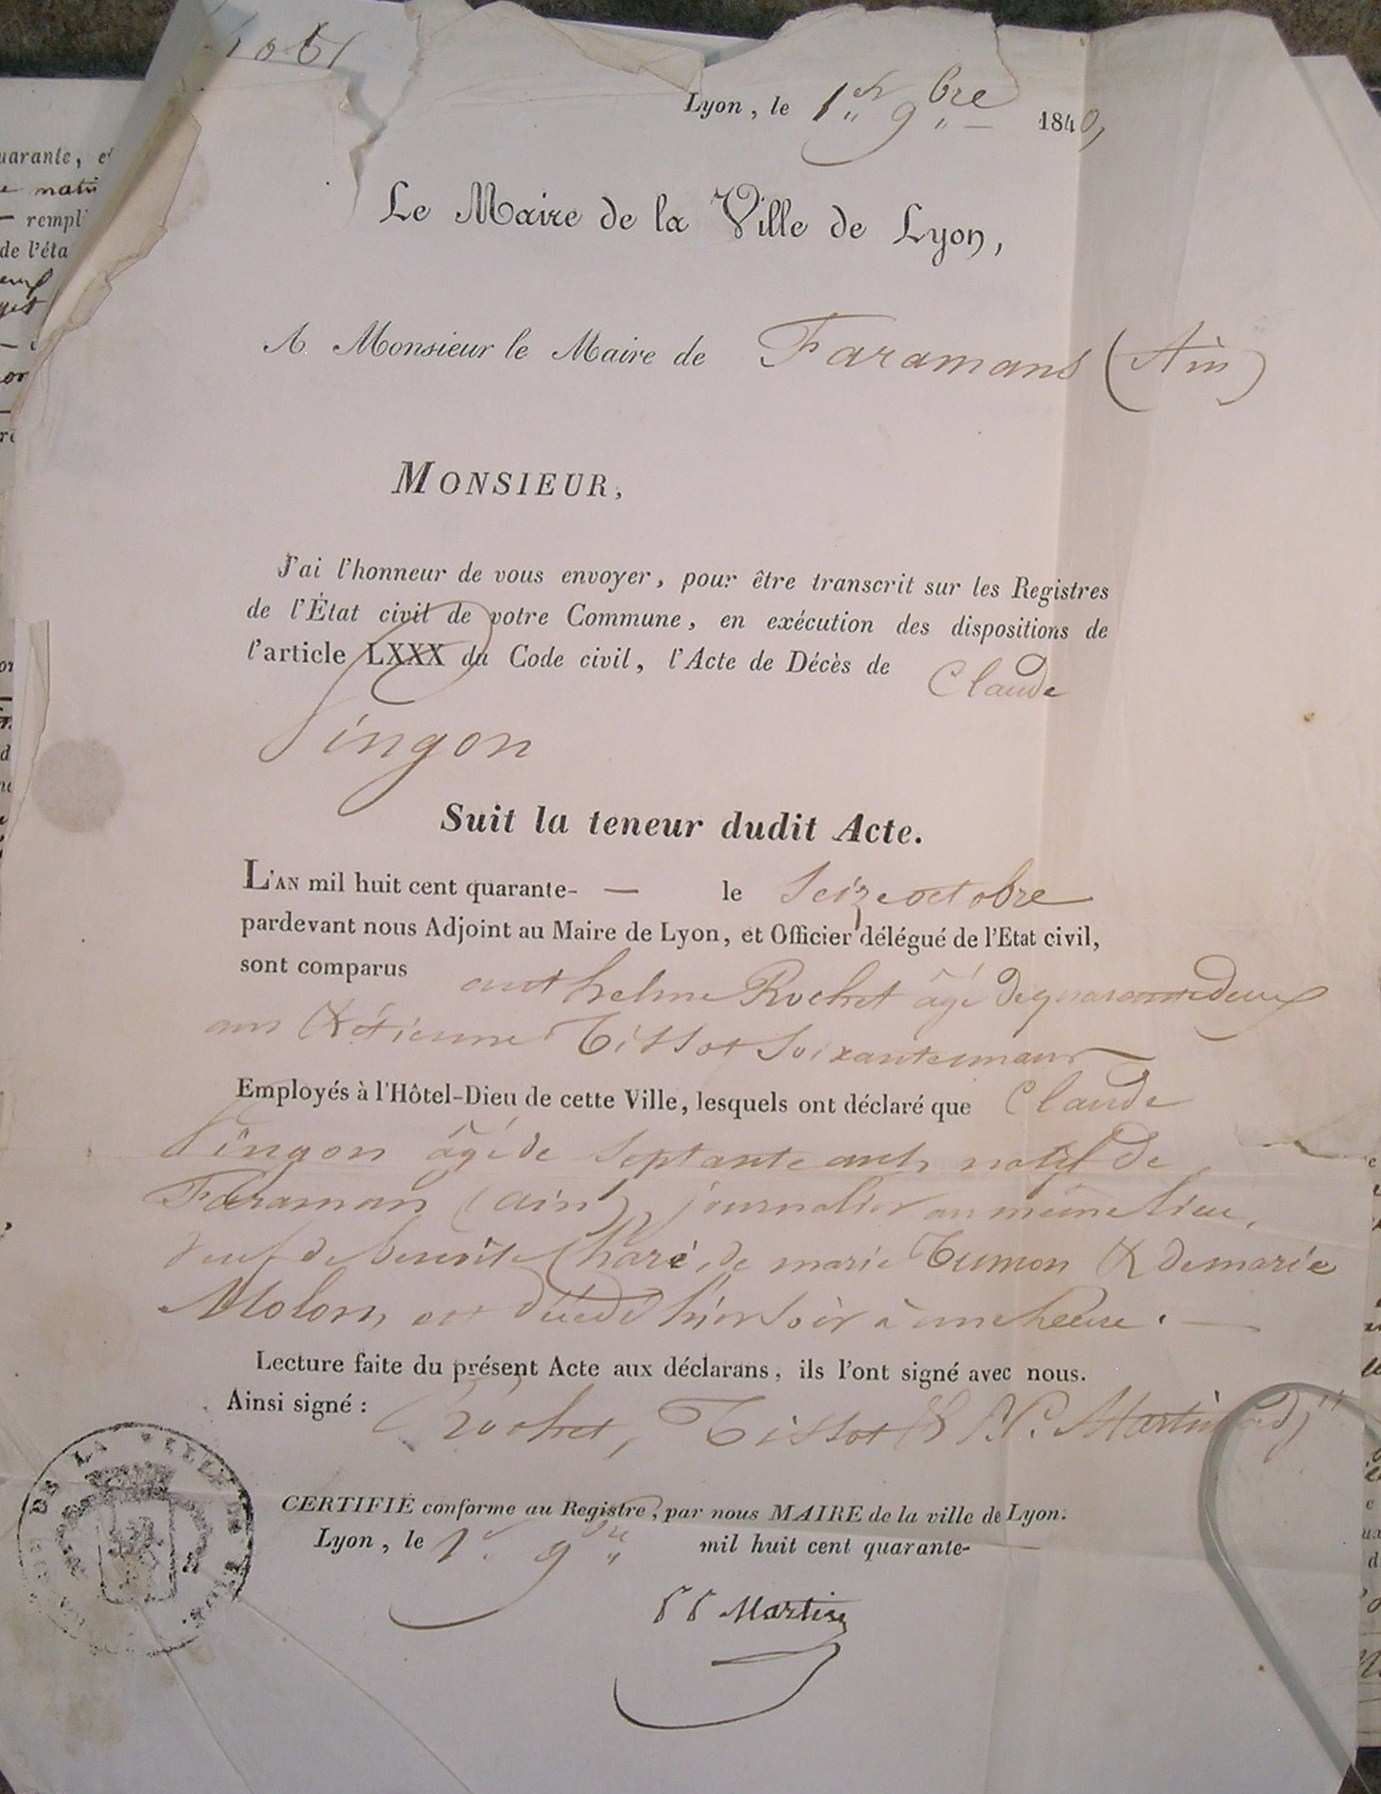 Lyon, le 1er 9bre 1840,
Le Maire de la Ville de Lyon,
A Monsieur le Maire de Faramans (Ain)
MONSIEUR,
J'ai l'honneur de vous envoyer, pour être transcrit sur les Registres
de l'État civil de votre Commune, en exécution des dispositions de
l'article LXXX du Code civil, l'Acte de Décès de Claude
Pingon
Suit la teneur dudit Acte.
L'AN mil huit cent quarante- — le Seize octobre
pardevant nous Adjoint au Maire de Lyon, et Officier délégué de l'Etat civil,
sont comparus anthelme Rochet âgé de quarante deux
ans & étienne Tissot Soixante un ans
Employés à l'Hôtel-Dieu de cette Ville, lesquels ont déclaré que Claude
Pingon âgé de Septante ans, natif de
Faraman (ain), journalier au même lieu,
veuf de benoite de marie & de marie
Molom, est décédé hier soir à une heure. —
Lecture faite du présent Acte aux déclarans, ils l'ont signé avec nous.
Ainsi signé : Rochet, Tissot & Martin adjt
CERTIFIÉ conforme au Registre, par nous MAIRE de la ville de Lyon.
Lyon, le 1er 9bre mil huit cent quarante- —
Martin